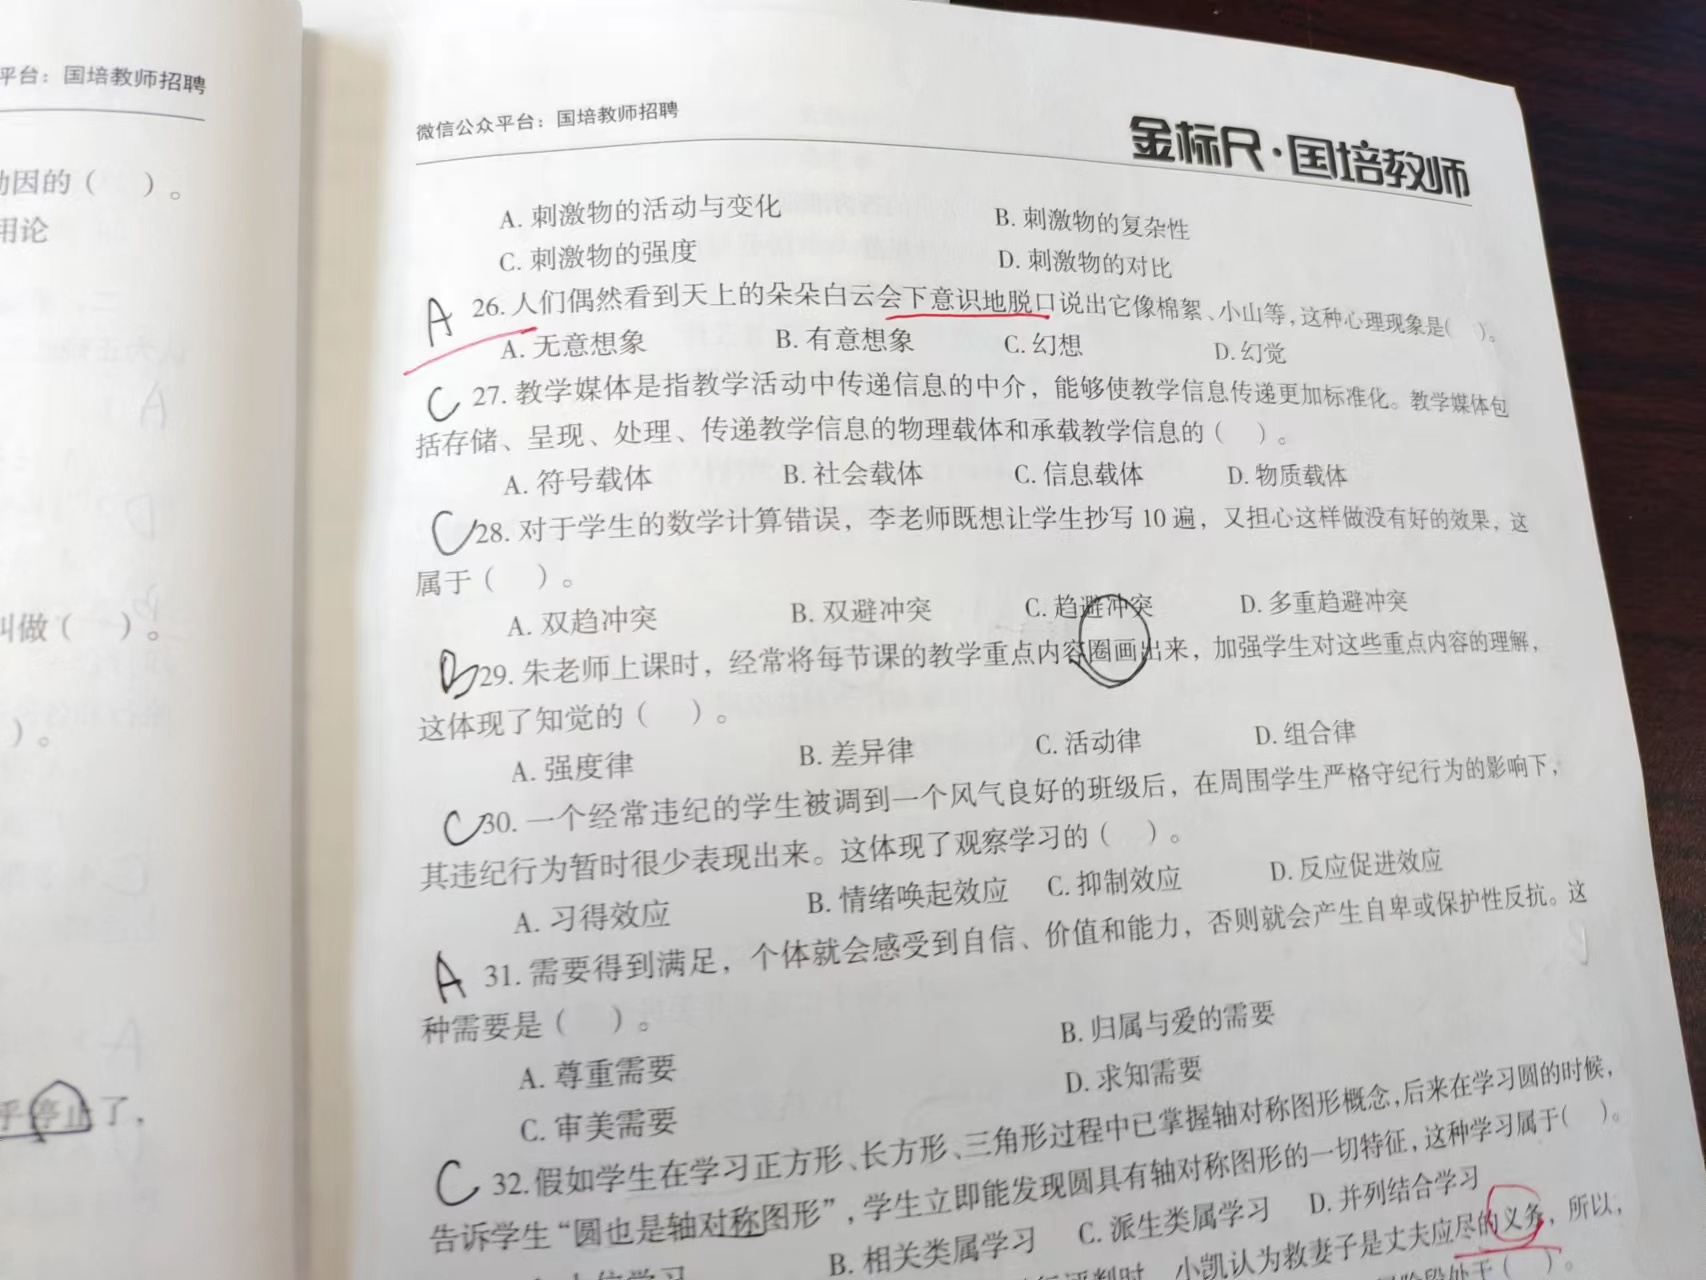 平台：国培教师招聘
动因的（ ）。
用论
叫做（ ）。
）。
乎停止了，
微信公众平台：国培教师招聘
金标尺·国培教师
A. 刺激物的活动与变化 B. 刺激物的复杂性
C. 刺激物的强度 D. 刺激物的对比
A 26. 人们偶然看到天上的朵朵白云会下意识地脱口说出它像棉絮、小山等，这种心理现象是( )。
A. 无意想象 B. 有意想象 C. 幻想 D. 幻觉
C 27. 教学媒体是指教学活动中传递信息的中介，能够使教学信息传递更加标准化。教学媒体包
括存储、呈现、处理、传递教学信息的物理载体和承载教学信息的（ ）。
A. 符号载体 B. 社会载体 C. 信息载体 D. 物质载体
C 28. 对于学生的数学计算错误，李老师既想让学生抄写 10 遍，又担心这样做没有好的效果，这
属于（ ）。
A. 双趋冲突 B. 双避冲突 C. 趋避冲突 D. 多重趋避冲突
B 29. 朱老师上课时，经常将每节课的教学重点内容圈画出来，加强学生对这些重点内容的理解，
这体现了知觉的（ ）。
A. 强度律 B. 差异律 C. 活动律 D. 组合律
C 30. 一个经常违纪的学生被调到一个风气良好的班级后，在周围学生严格守纪行为的影响下，
其违纪行为暂时很少表现出来。这体现了观察学习的（ ）。
A. 习得效应 B. 情绪唤起效应 C. 抑制效应 D. 反应促进效应
A 31. 需要得到满足，个体就会感受到自信、价值和能力，否则就会产生自卑或保护性反抗。这
种需要是（ ）。
A. 尊重需要 B. 归属与爱的需要
C. 审美需要 D. 求知需要
C 32. 假如学生在学习正方形、长方形、三角形过程中已掌握轴对称图形概念，后来在学习圆的时候，
告诉学生“圆也是轴对称图形”，学生立即能发现圆具有轴对称图形的一切特征，这种学习属于( )。
B. 相关类属学习 C. 派生类属学习 D. 并列结合学习
小凯认为救妻子是丈夫应尽的义务，所以，